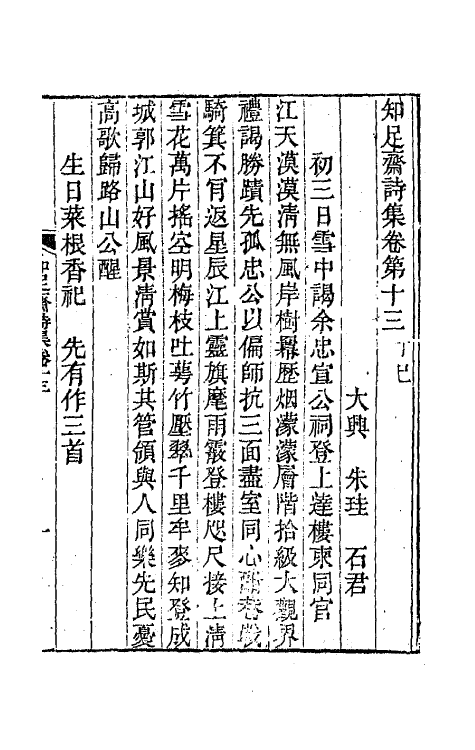 知足齋詩集卷第十三 丁巳
大興 朱珪 石君
初三日雪中謁余忠宣公祠登上達樓柬同官
江天漠漠淸無風岸樹羃歷烟濛濛層階拾級大觀界
禮謁勝蹟先孤忠公以偏師抗三面盡室同心巷戰
騎箕不肯返星辰江上靈旗麾雨霰登樓咫尺接上淸
雪花萬片搖空明梅枝吐萼竹壓翠千里牟麥知登成
城郭江山好風景淸賞如斯其管領與人同樂先民憂
高歌歸路山公醒
生日菜根香祀 先有作三首
知足齋詩集卷十三
一